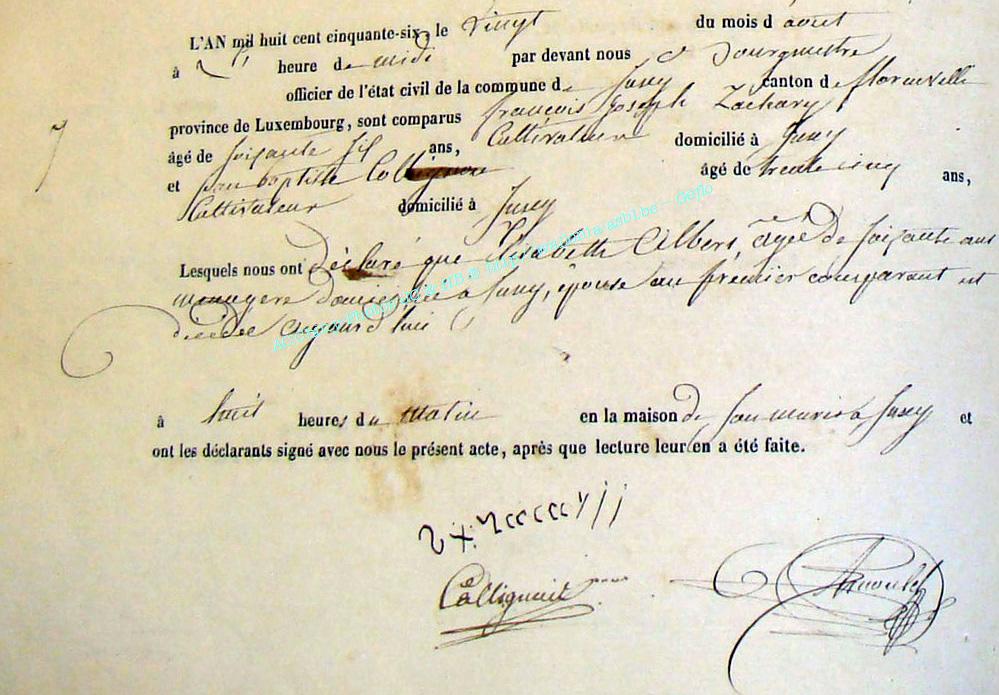 L'AN mil huit cent cinquante-six, le vingt du mois d'aout
à heure de midi par devant nous Bourgmestre
officier de l'état civil de la commune de Juzy canton de
province de Luxembourg, sont comparus françois Joseph Zachary
âgé de soisante six ans, Cultivateur domicilié à Juzy
et jean baptiste Collignon âgé de trente cinq ans,
Cultivateur domicilié à Jusey
Lesquels nous ont déclaré que Elisabeth Albers, agée de soisante ans
menagere domiciliée à Jusey, épouse au premier comparant est
décédée aujourd'hui
à huit heures du matin en la maison de son mari à Jusey et
ont les déclarants signé avec nous le présent acte, après que lecture leur en a été faite.
Collignon